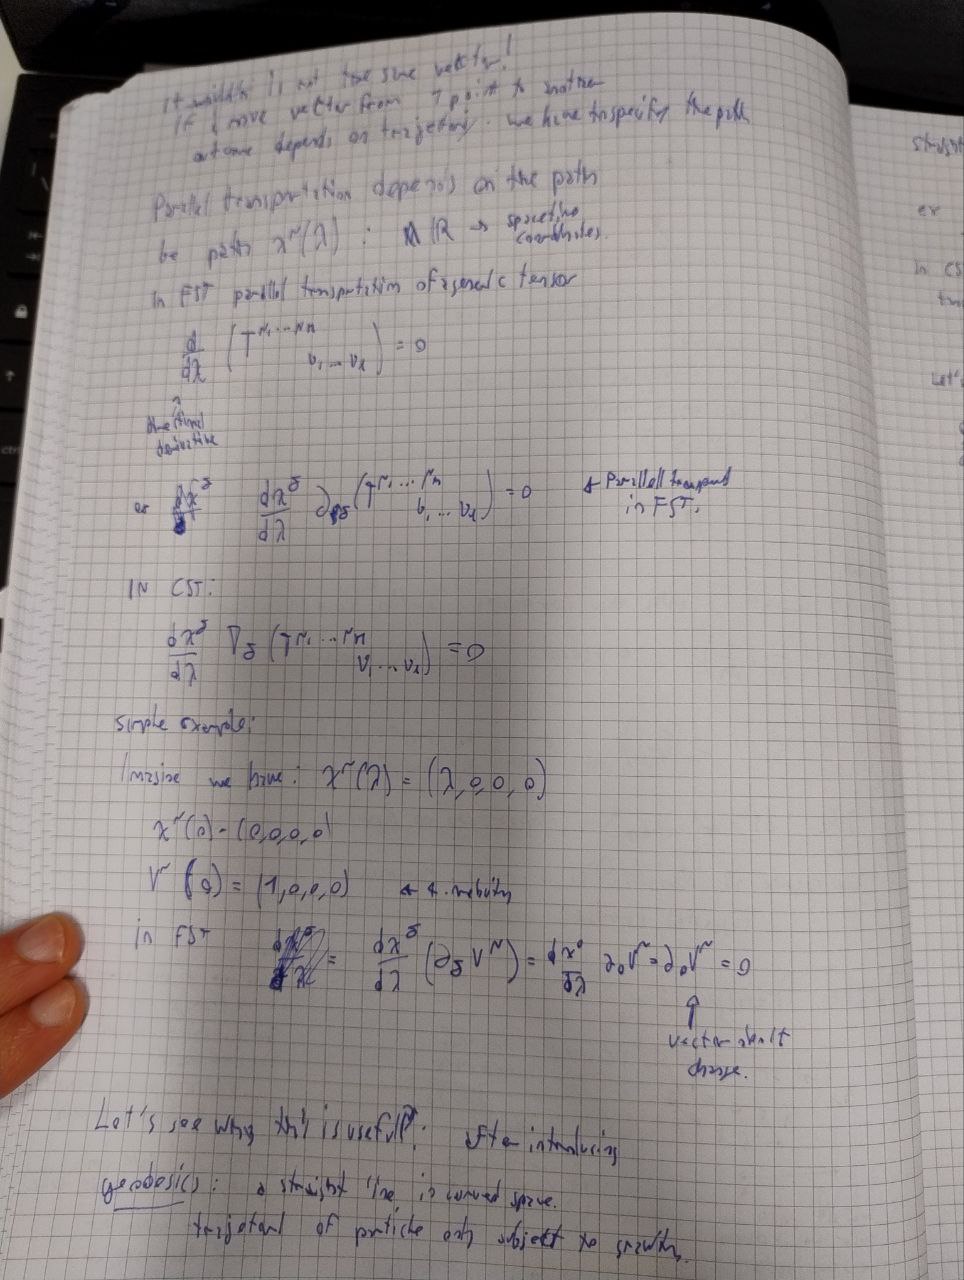 It is not the same vector!
If I move vector from 1 point to another
outcome depends on trajectory. we have to specify the path
Parallel transportation depends on the path
be path x^μ(λ) : ℝ → spacetime coordinates.
In FST parallel transportation of a generic tensor
d/dλ (T^{μ₁...μₙ}_{ν₁...ν_k}) = 0
↑
directional
derivative
or dx^σ/dλ ∂_σ (T^{μ₁...μₙ}_{ν₁...ν_k}) = 0 ← Parallel transport
in FST.
IN CST:
dx^σ/dλ ∇_σ (T^{μ₁...μₙ}_{ν₁...ν_k}) = 0
Simple example:
Imagine we have: x^μ(λ) = (λ,0,0,0)
x^μ(0) = (0,0,0,0)
V^μ(0) = (1,0,0,0) ← 4-velocity
in FST = dx^σ/dλ (∂_σ V^μ) = dx^0/dλ ∂_0 V^μ = ∂_0 V^μ = 0
↑
vector
change.
Let's see why this is useful: After introducing
geodesics: a straight line in curved space.
trajectory of particle only subject to gravity.
str
er
in CS
Let's